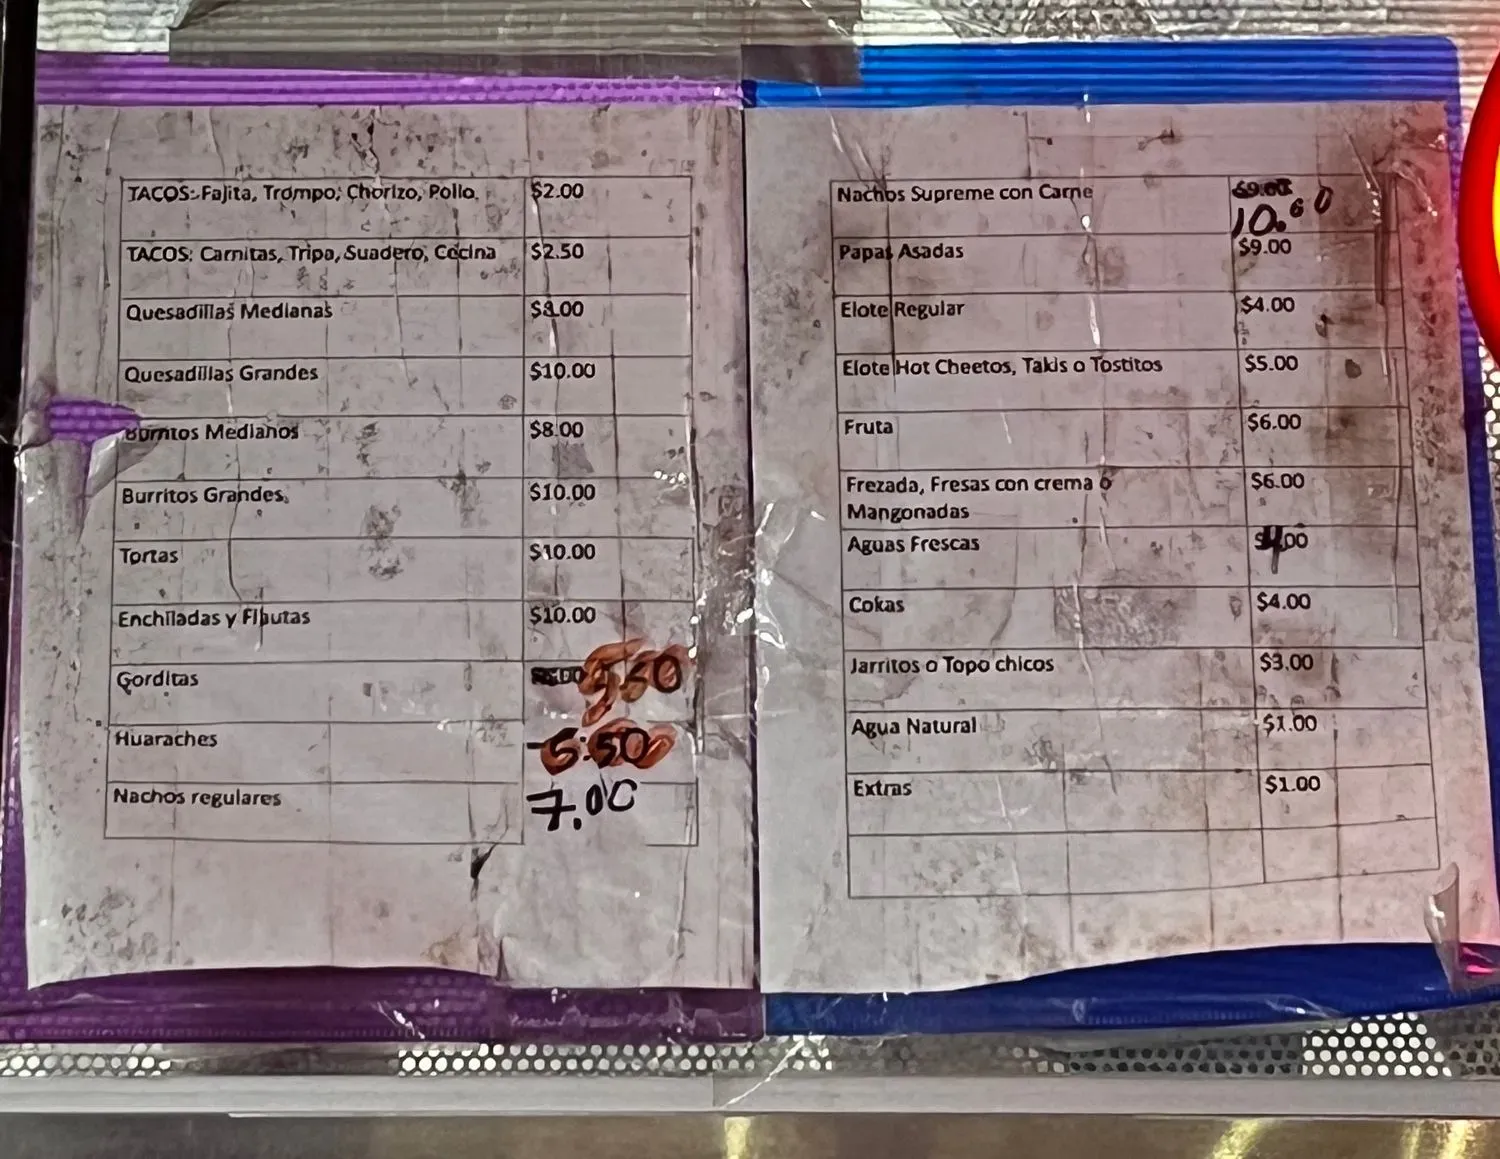 TACOS: Fajita, Trompo, Chorizo, Pollo. $2.00
TACOS: Carnitas, Tripa, Suadero, Cecina $2.50
Quesadillas Medianas $8.00
Quesadillas Grandes $10.00
Burritos Medianos $8.00
Burritos Grandes. $10.00
Tortas $10.00
Enchiladas y Flautas $10.00
Gorditas
Huaraches
Nachos regulares 7.00
Nachos Supreme con Carne $9.00
10.00
Papas Asadas $9.00
Elote Regular $4.00
Elote Hot Cheetos, Takis o Tostitos $5.00
Fruta $6.00
Frezada, Fresas con crema o $6.00
Mangonadas
Aguas Frescas $4.00
Cokas $4.00
Jarritos o Topo chicos $3.00
Agua Natural $1.00
Extras $1.00